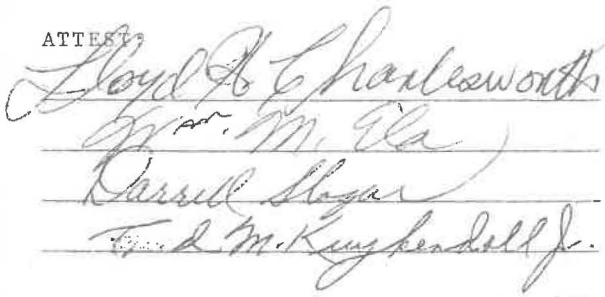 ATTEST:
Lloyd H Charlesworth
Wm. M. Ela
Darrell
M. Kuykendall Jr.